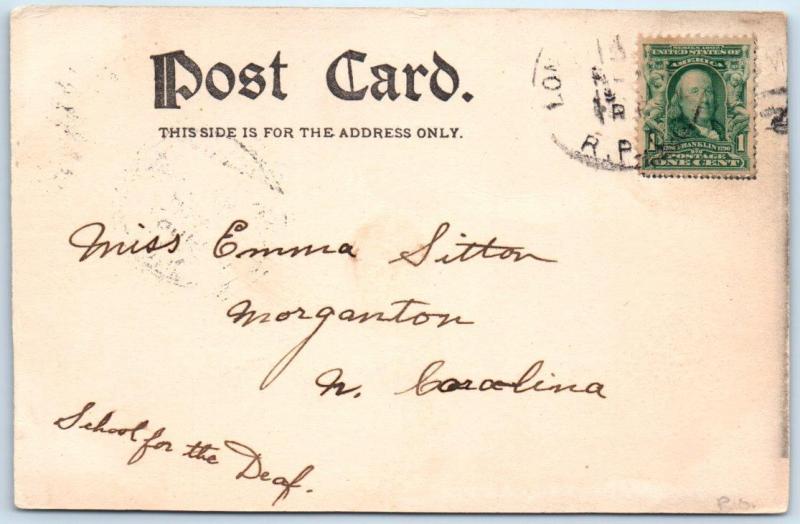 Post Card.
THIS SIDE IS FOR THE ADDRESS ONLY.
SERIES 1902
UNITED STATES OF
AMERICA
1 FRANKLIN 1
POSTAGE
ONE CENT
R.P.
Miss Emma Sitton
Morganton
N. Carolina
School for the Deaf.